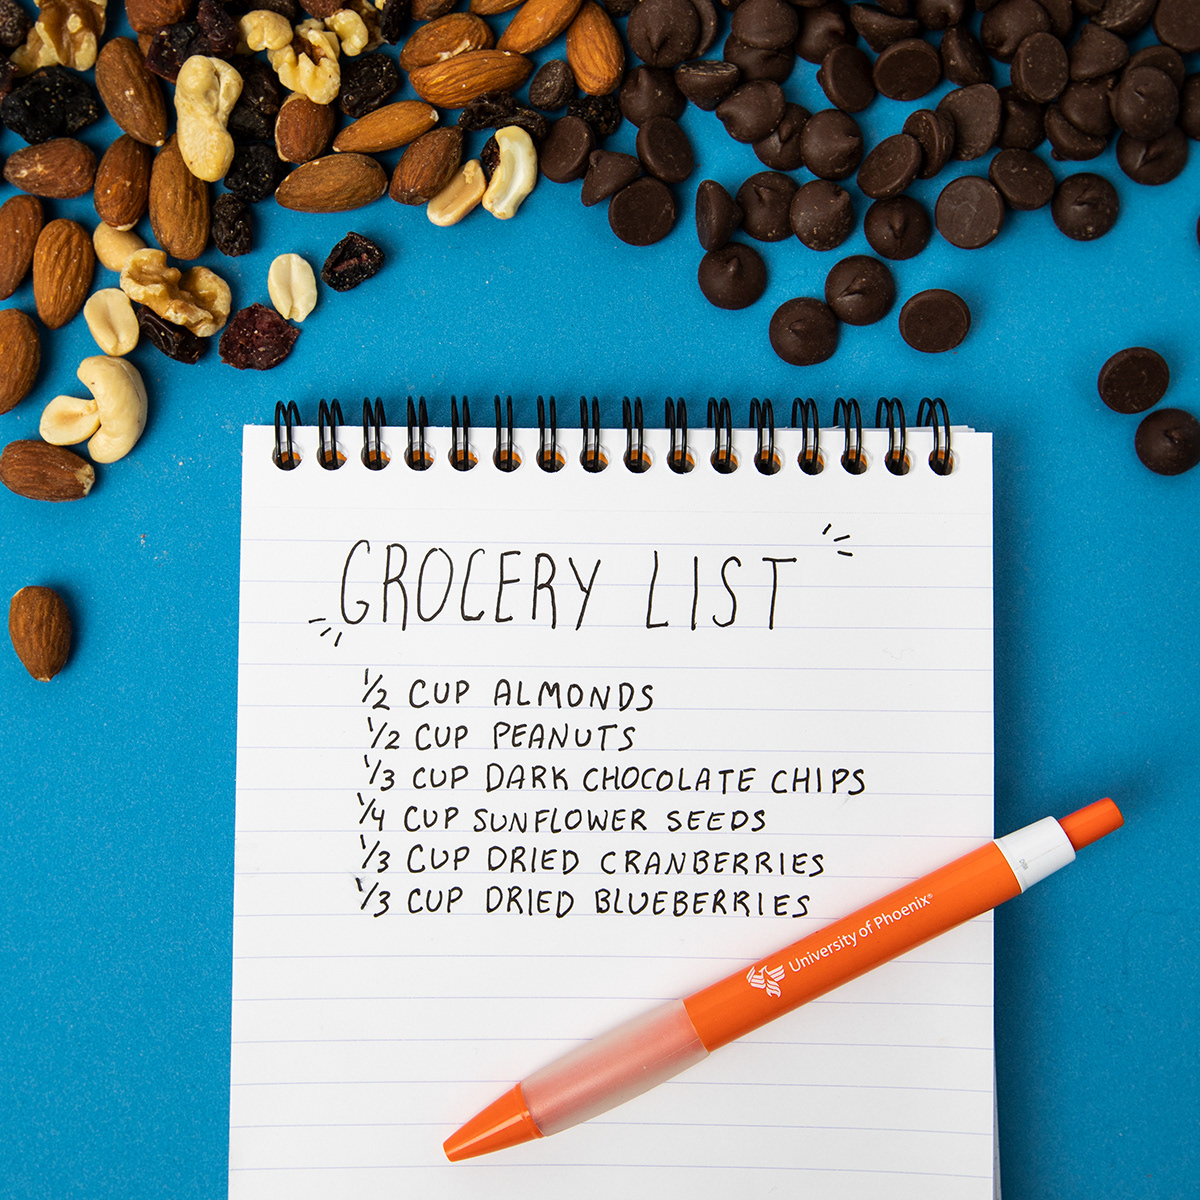 GROCERY LIST
1/2 CUP ALMONDS
1/2 CUP PEANUTS
1/3 CUP DARK CHOCOLATE CHIPS
1/4 CUP SUNFLOWER SEEDS
1/3 CUP DRIED CRANBERRIES
1/3 CUP DRIED BLUEBERRIES
University of Phoenix®